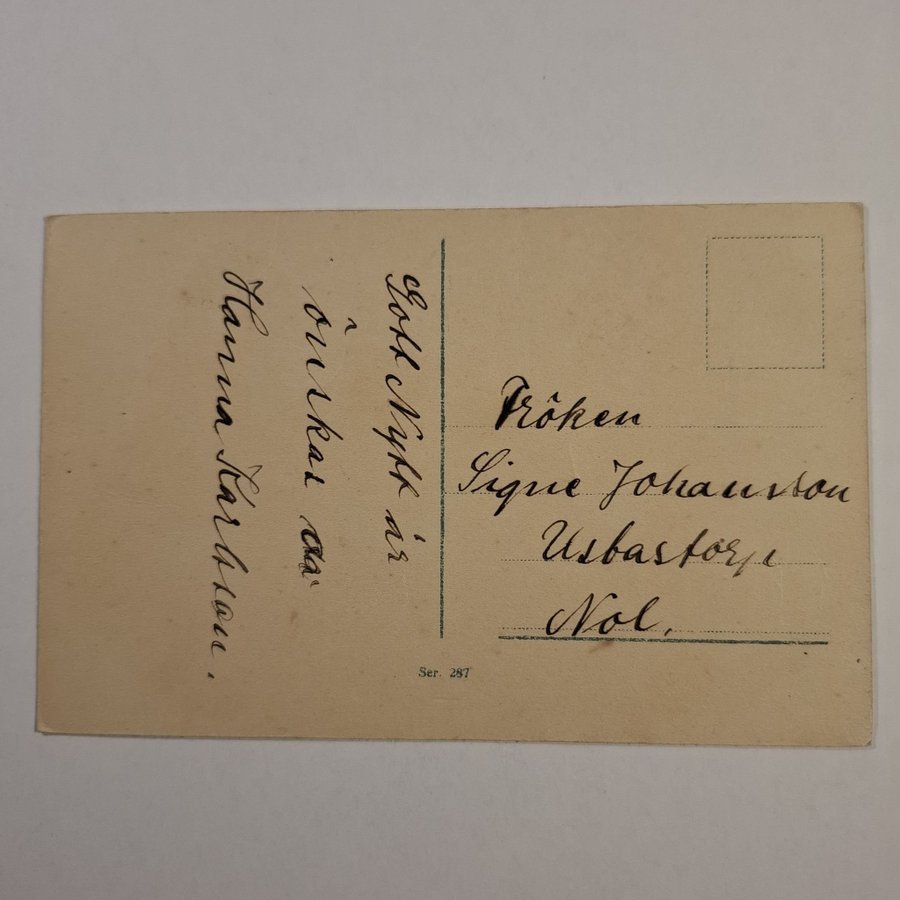 Gott Nytt år
önskas av
Hanna Karlsson.
Fröken
Signe Johansson
Usbastorp
Nol.
Ser. 287